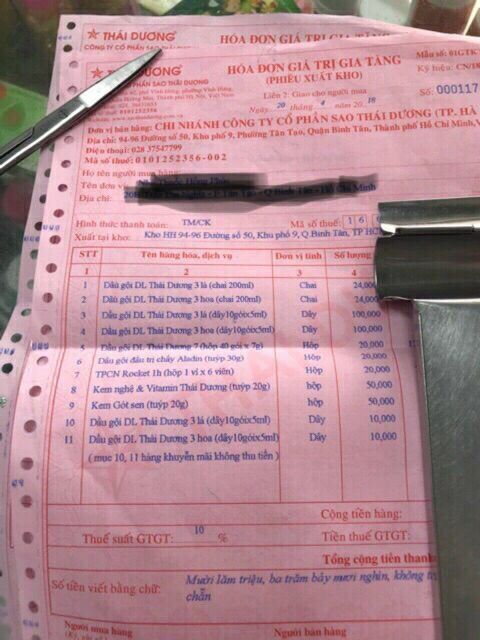 THÁI DƯƠNG
CÔNG TY CỔ PHẦN SAO THÁI DƯƠNG
HÓA ĐƠN GIÁ TRỊ GIA TĂNG
THÁI DƯƠNG
CỔ PHẦN SAO THÁI DƯƠNG
HÓA ĐƠN GIÁ TRỊ GIA TĂNG
(PHIẾU XUẤT KHO)
Liên 2: Giao cho người mua
Ngày 20 tháng 4 năm 2018
Mẫu số: 01GTK
Ký hiệu: CN/18
Số: 000117
Đơn vị bán hàng: CHI NHÁNH CÔNG TY CỔ PHẦN SAO THÁI DƯƠNG (TP. HÀ
Địa chỉ: 94-96 Đường số 50, Khu phố 9, Phường Tân Tạo, Quận Bình Tân, Thành phố Hồ Chí Minh,
Điện thoại: 028 37547799
Mã số thuế: 0101252356-002
Họ tên người mua hàng:
Tên đơn vị
Địa chỉ: Chí Minh
Hình thức thanh toán: TM/CK Mã số thuế: 1 6
Xuất tại kho: Kho HH 94-96 Đường số 50, Khu phố 9, Q.Bình Tân, TP HC
STT Tên hàng hóa, dịch vụ Đơn vị tính Số lượng
1 2 3 4
1 Dầu gội DL Thái Dương 3 lá (chai 200ml) Chai 24,00
2 Dầu gội DL Thái Dương 3 hoa (chai 200ml) Chai 24,000
3 Dầu gội DL Thái Dương 3 lá (dây10góix5ml) Dây 100,000
4 Dầu gội DL Thái Dương 3 hoa (dây10góix5ml) Dây 100,000
5 Dầu gội DL Thái Dương 7 (hộp 40 gói x 7g) Hộp 20,000
6 Dầu gội đầu trị chấy Aladin (tuýp 30g) Hộp 20,000
7 TPCN Rocket 1h (hộp 1 vỉ x 6 viên) hộp 20,000
8 Kem nghệ & Vitamin Thái Dương (tuýp 20g) hộp 50,000
9 Kem Gót sen (tuýp 20g) Hộp 50,000
10 Dầu gội DL Thái Dương 3 lá (dây10góix5ml) Dây 10,000
11 Dầu gội DL Thái Dương 3 hoa (dây10góix5ml) Dây 10,000
( mục 10, 11 hàng khuyến mãi không thu tiền )
Cộng tiền hàng:
Thuế suất GTGT: 10 % Tiền thuế GTGT:
Tổng cộng tiền thanh
Số tiền viết bằng chữ: Mười lăm triệu, ba trăm bảy mươi nghìn, không
chẵn
Người mua hàng Người bán hàng